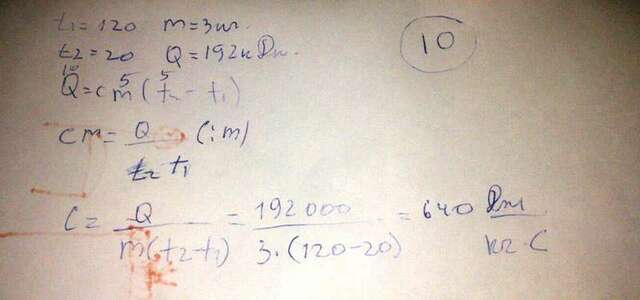 t₁=120 m=3кг.
t₂=20 Q=192кДж.
10
Q=cm(t₂-t₁)
cm= Q/(t₂ t₁) (:m)
c= Q/(m(t₂-t₁)) = 192000/(3·(120-20)) =640 Дж/(кг·C)